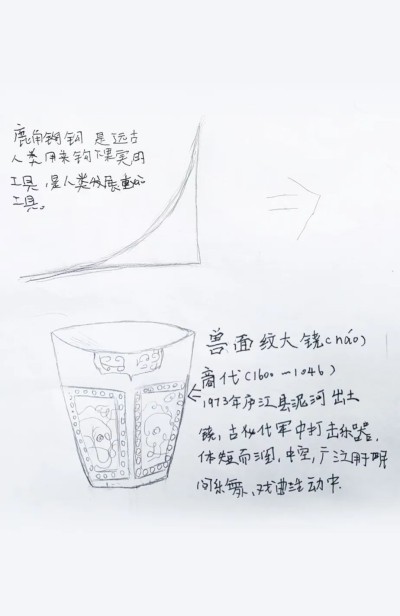 鹿角锄钩 是远古
人类用来钩果实的
工具,是人类发展的
工具。
兽面纹大铙(náo)
商代(1600~1046)
1973年庐江县泥河出土
铙,古代军中打击乐器,
体短而阔,中空,广泛用于民
间乐舞,戏曲活动中.